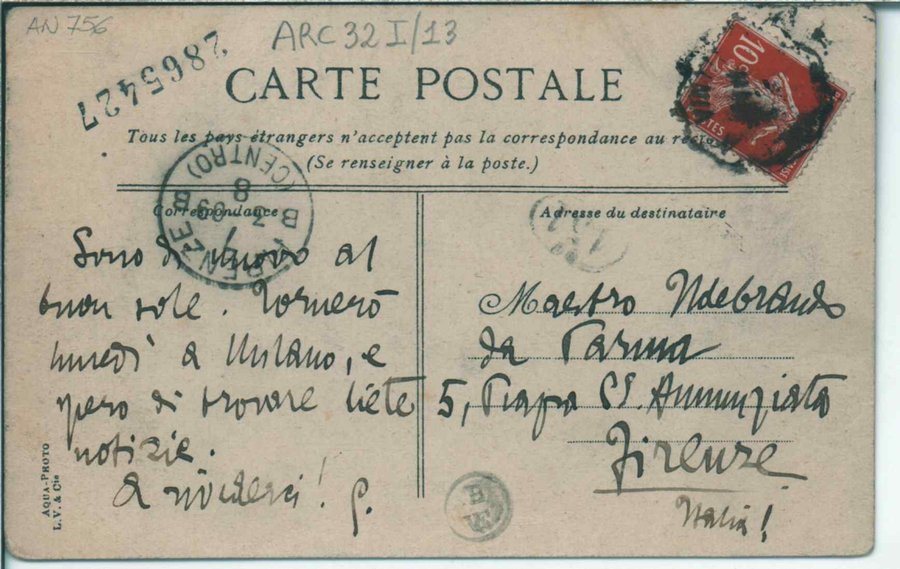 AN 756
ARC 32 I/13
2865427
CARTE POSTALE
Tous les pays étrangers n'acceptent pas la correspondance au recto
(Se renseigner à la poste.)
FIRENZE (CENTRO)
Correspondance
Sono di nuovo al
buon sole. Tornerò
lunedì a Milano, e
spero di trovare liete
notizie.
A rivederci! G.
AQUA-PHOTO
L.V. & Cie
10
Adresse du destinataire
Maestro Ildebrando
da Parma
5, Piazza SS. Annunziata
Firenze
Italia!